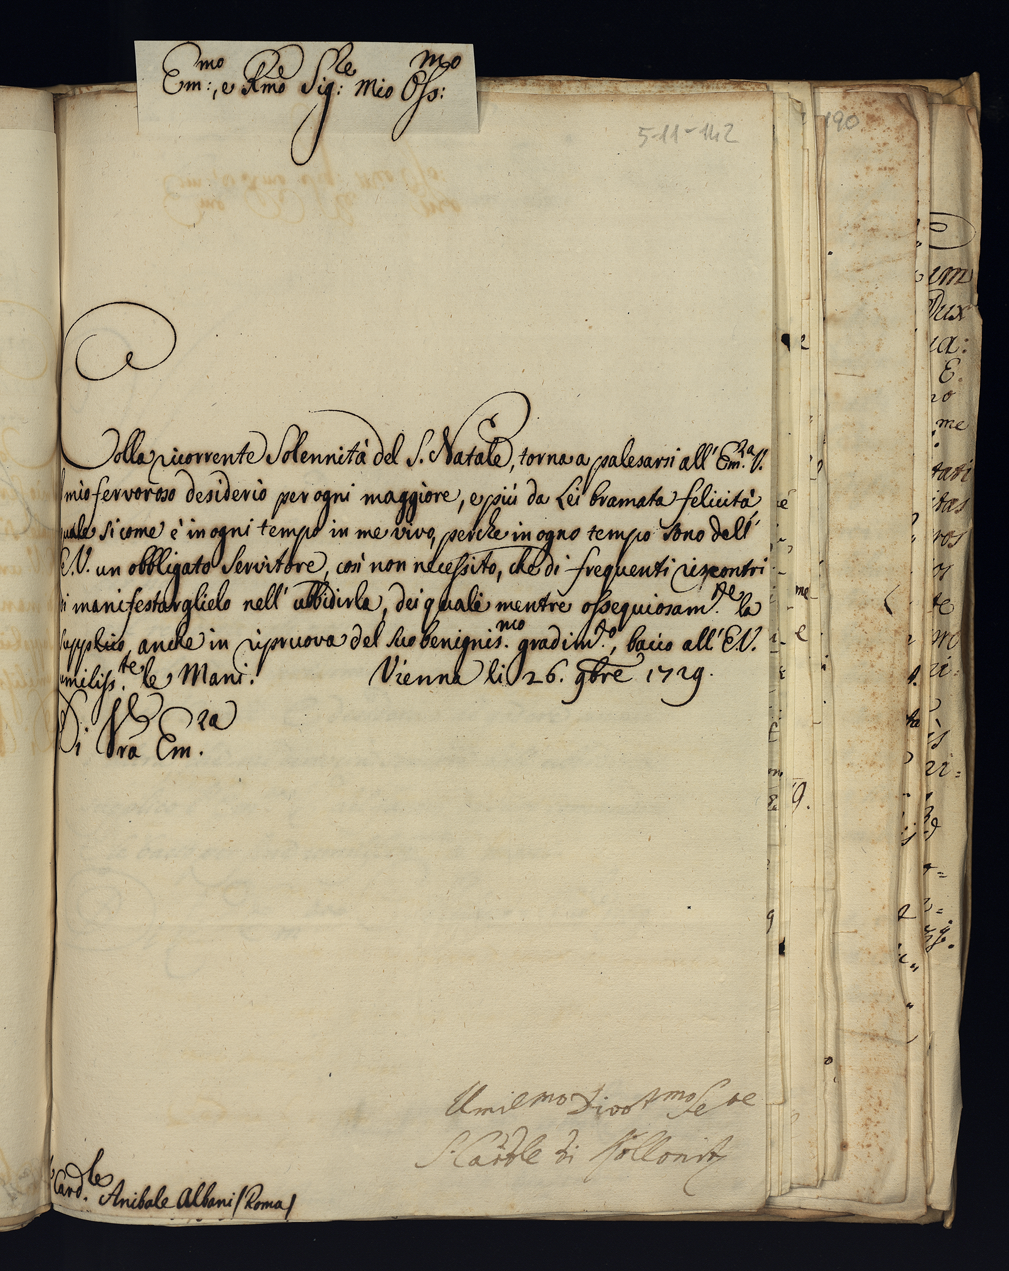 Em:mo, e Rmo Sigre: mio Oss:mo
5-11-142
190
Colla ricorrente Solennità del S. Natale, torna a palesarsi all' Em.ra V.
mio fervoroso desiderio per ogni maggiore, e più da Lei bramata felicità,
quale sicome è in ogni tempo in me vivo, perche in ogno tempo sono dell'
E.V. un obbligato Servitore, così non necessito, che di frequenti riscontri
di manifestarglielo nell' ubbidirla, dei quali mentre ossequiosam.te la
supplico, anche in ripruova del suo benignis.mo gradim.to, bacio all' E.V.
umiliss.te le Mani. Vienna li 26. 9bre 1729.
Di Vra Em.ra
Umilmo Divotmo Sere
S Cardle di Kollonitz
Card.le Anibale Albani /Roma/